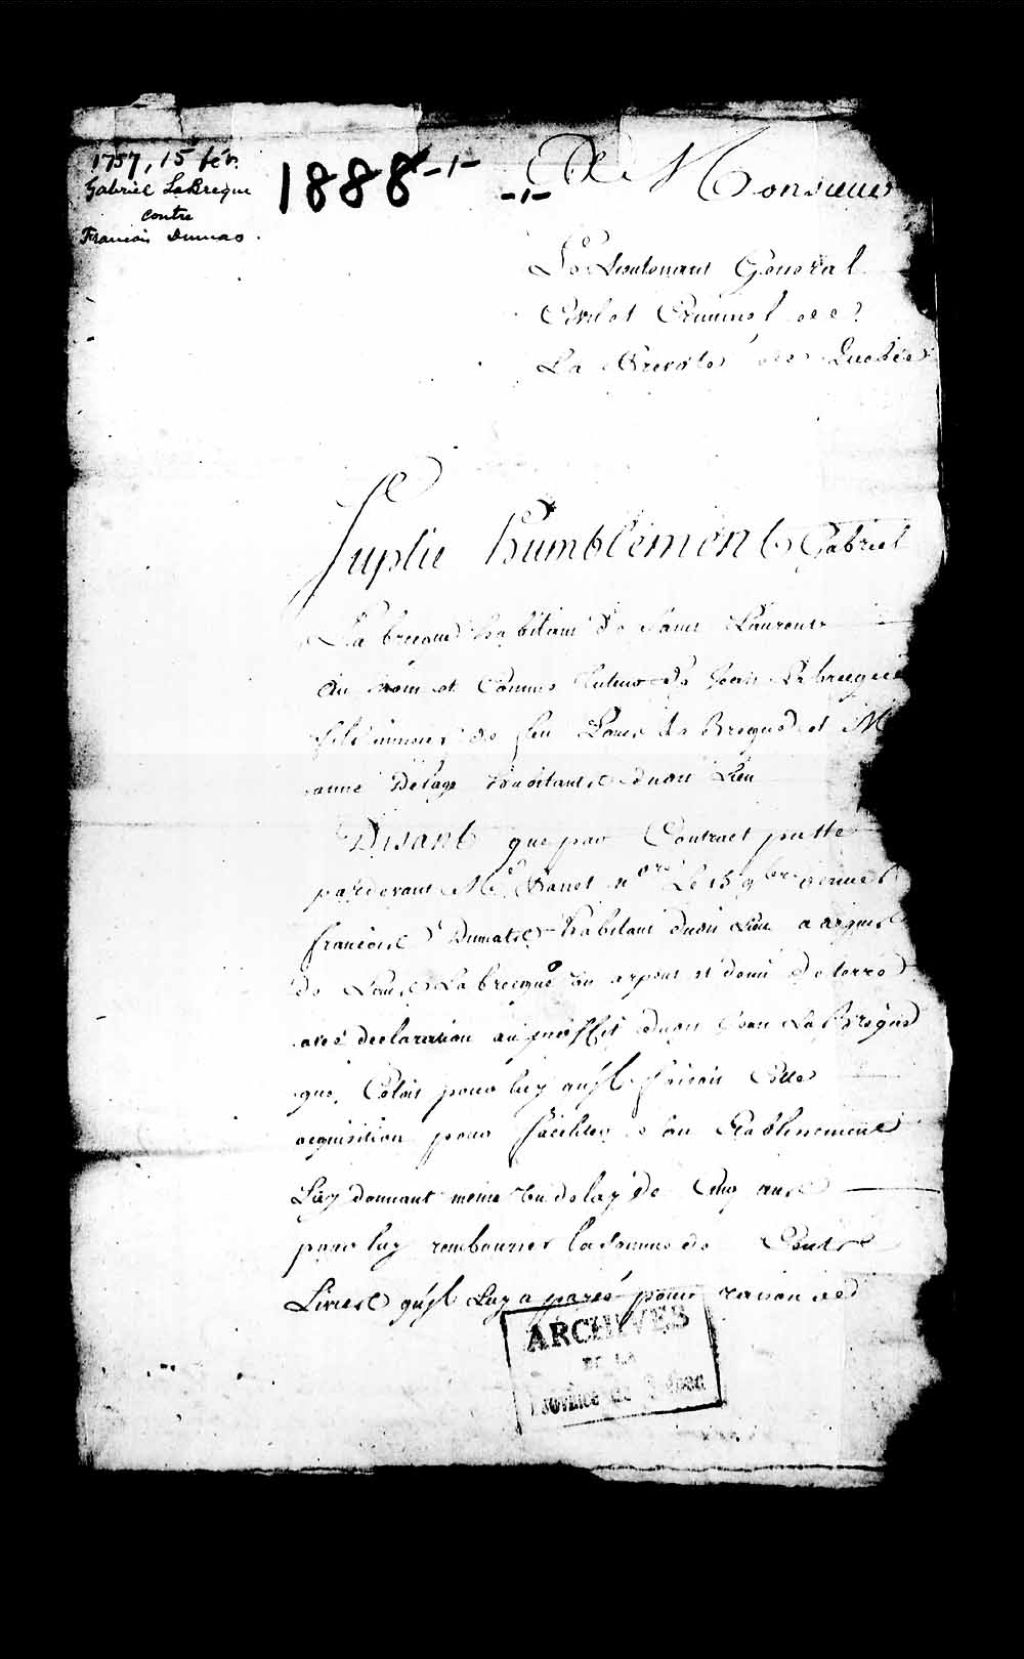 1757, 15 fév.
Gabriel LaBreque
contre
Francois Dumas.
1888 -1-
-1-
A Monsieur
Le Lieutenant General
Civil et Criminel de
La Prevoté de Quebec
Suplie humblement Gabriel
La brecque habitant de Saint Laurent
Au nom et Comme tuteur de Jean La brecque
fils mineur de feu La Breque et M
anne Delage habitants dudit Lieu
Disant que par Contract passé
pardevant Me Panet nore Le 15 9bre dernier
francois Dumas habitant dudit Lieu a acquis
de Louis La brecque un arpent et demi de terre
avec declaration au proffit dudit Jean La Breque
que Cetoit pour luy qu'il faisoit Cette
acquisition pour faciliter son Etablissement
Luy donnant meme un delay de Cinq ans
pour luy rembourser la somme de Cent
Livres qu'il Luy a payé pour raison de
ARCHIVES
DE LA
Province de Québec